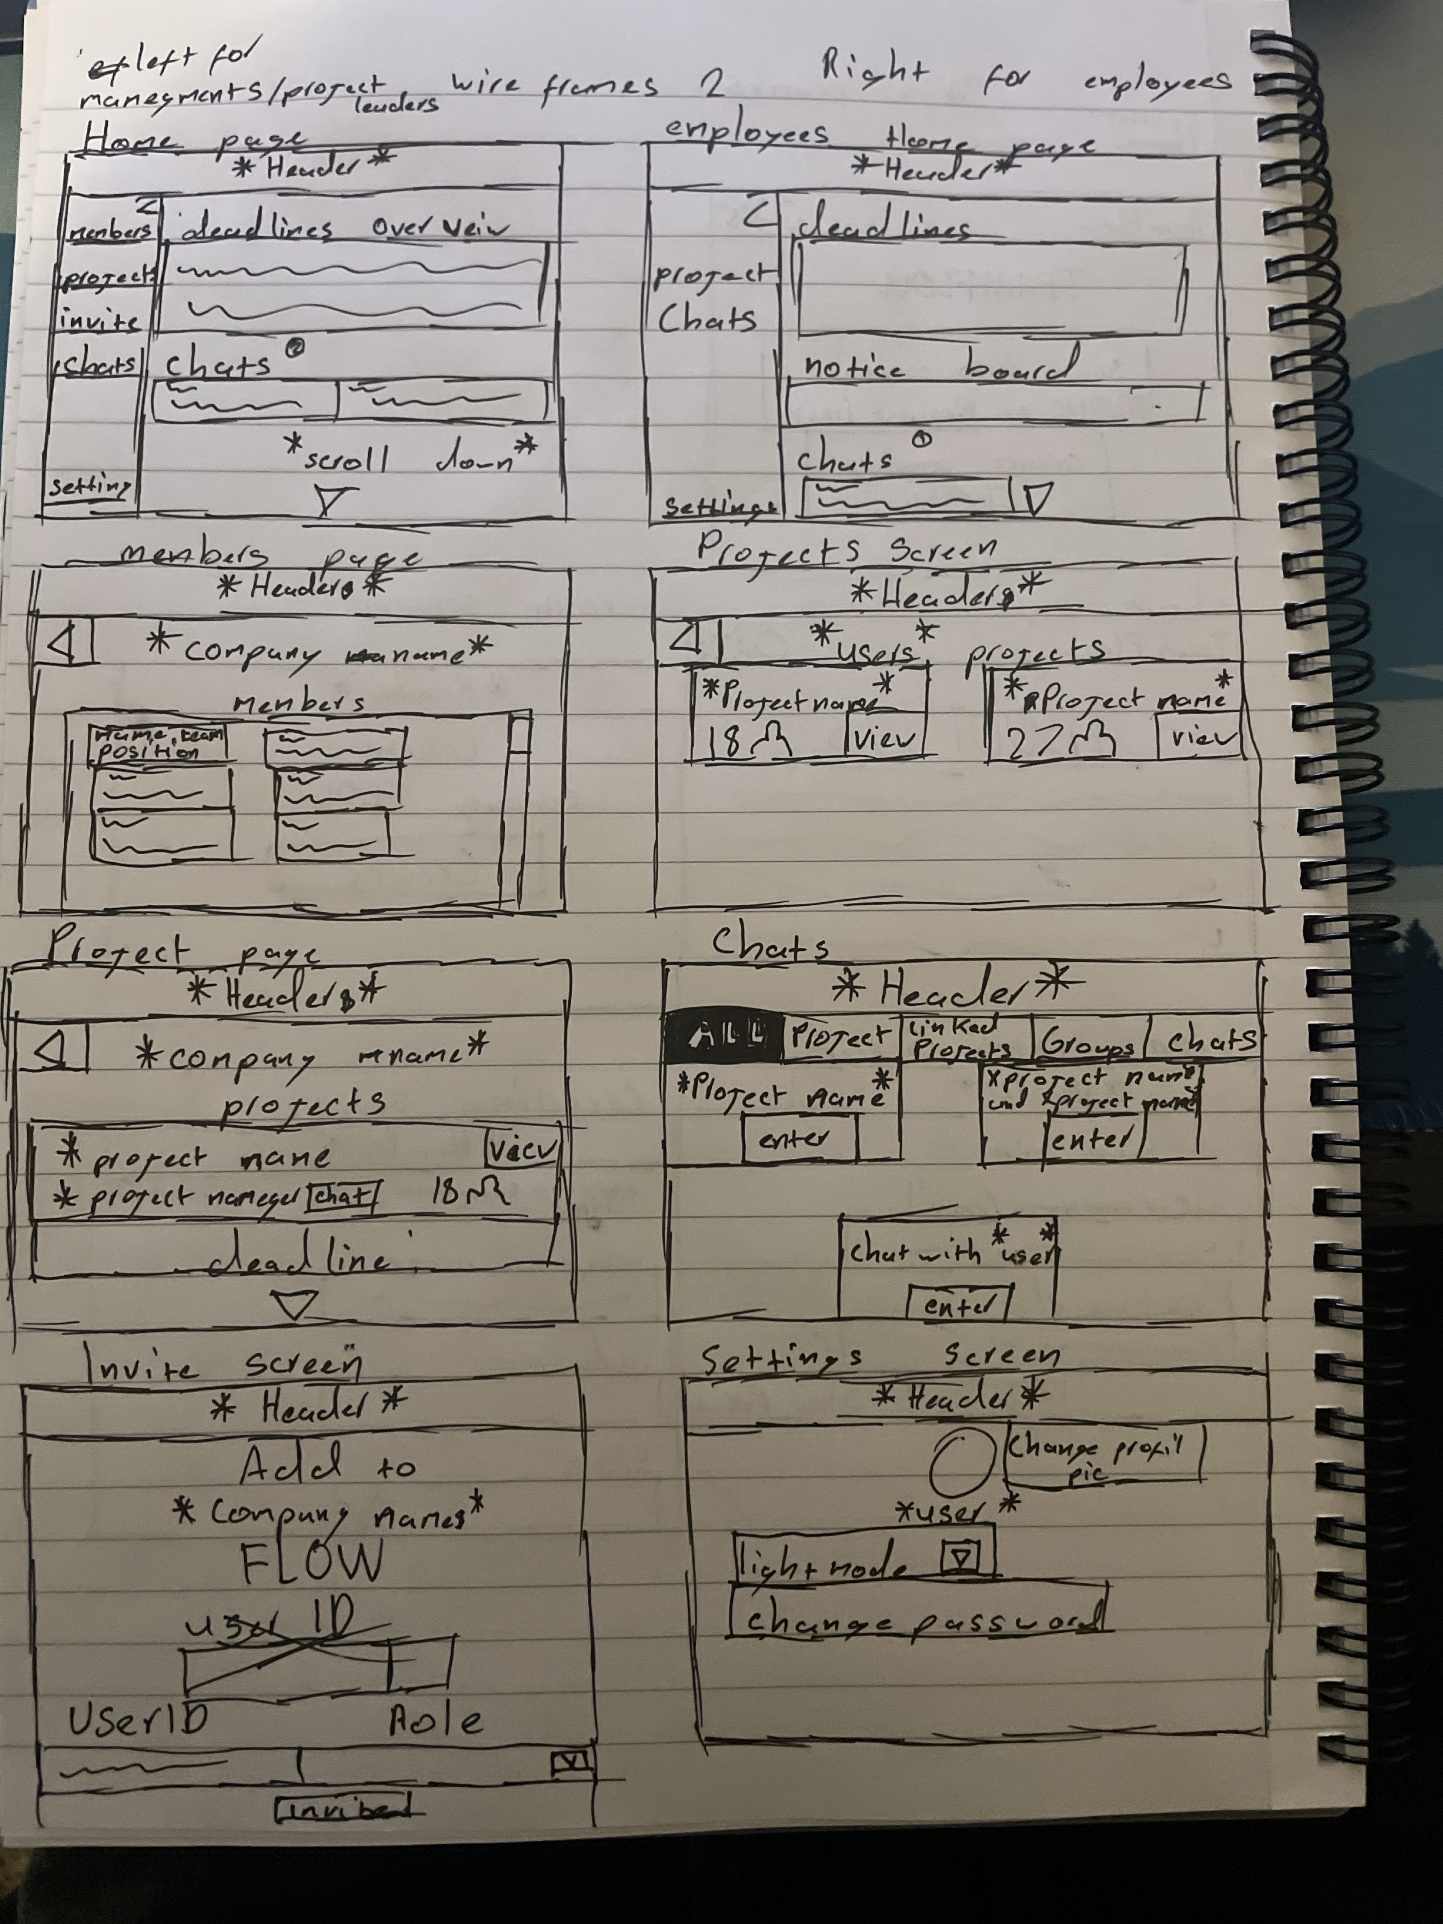 left for
manegments/project
leaders
wire frames 2
Right for employees
Home page
*Header*
members
project
invite
chats
setting
deadlines overveiw
chats 2
*scroll down*
employees Home page
*Header*
project
Chats
settings
deadlines
notice board
chats 1
members page
*Headers*
*company name*
members
Name, team
POSITION
Projects Screen
*Headers*
*users* projects
*Project name*
18
view
*Project name*
27
view
Project page
*Headers*
*company name*
projects
*project name
view
*project maneger chat 18
deadline
Chats
*Header*
ALL
Project
linked
Projects
Groups
chats
*Project name*
enter
*project name
and *project name
enter
chat with *user*
enter
Invite screen
*Header*
Add to
*Company names*
FLOW
user ID
UserID Role
invite
Settings Screen
*Header*
Change profil
pic
*user*
lightmode
change password